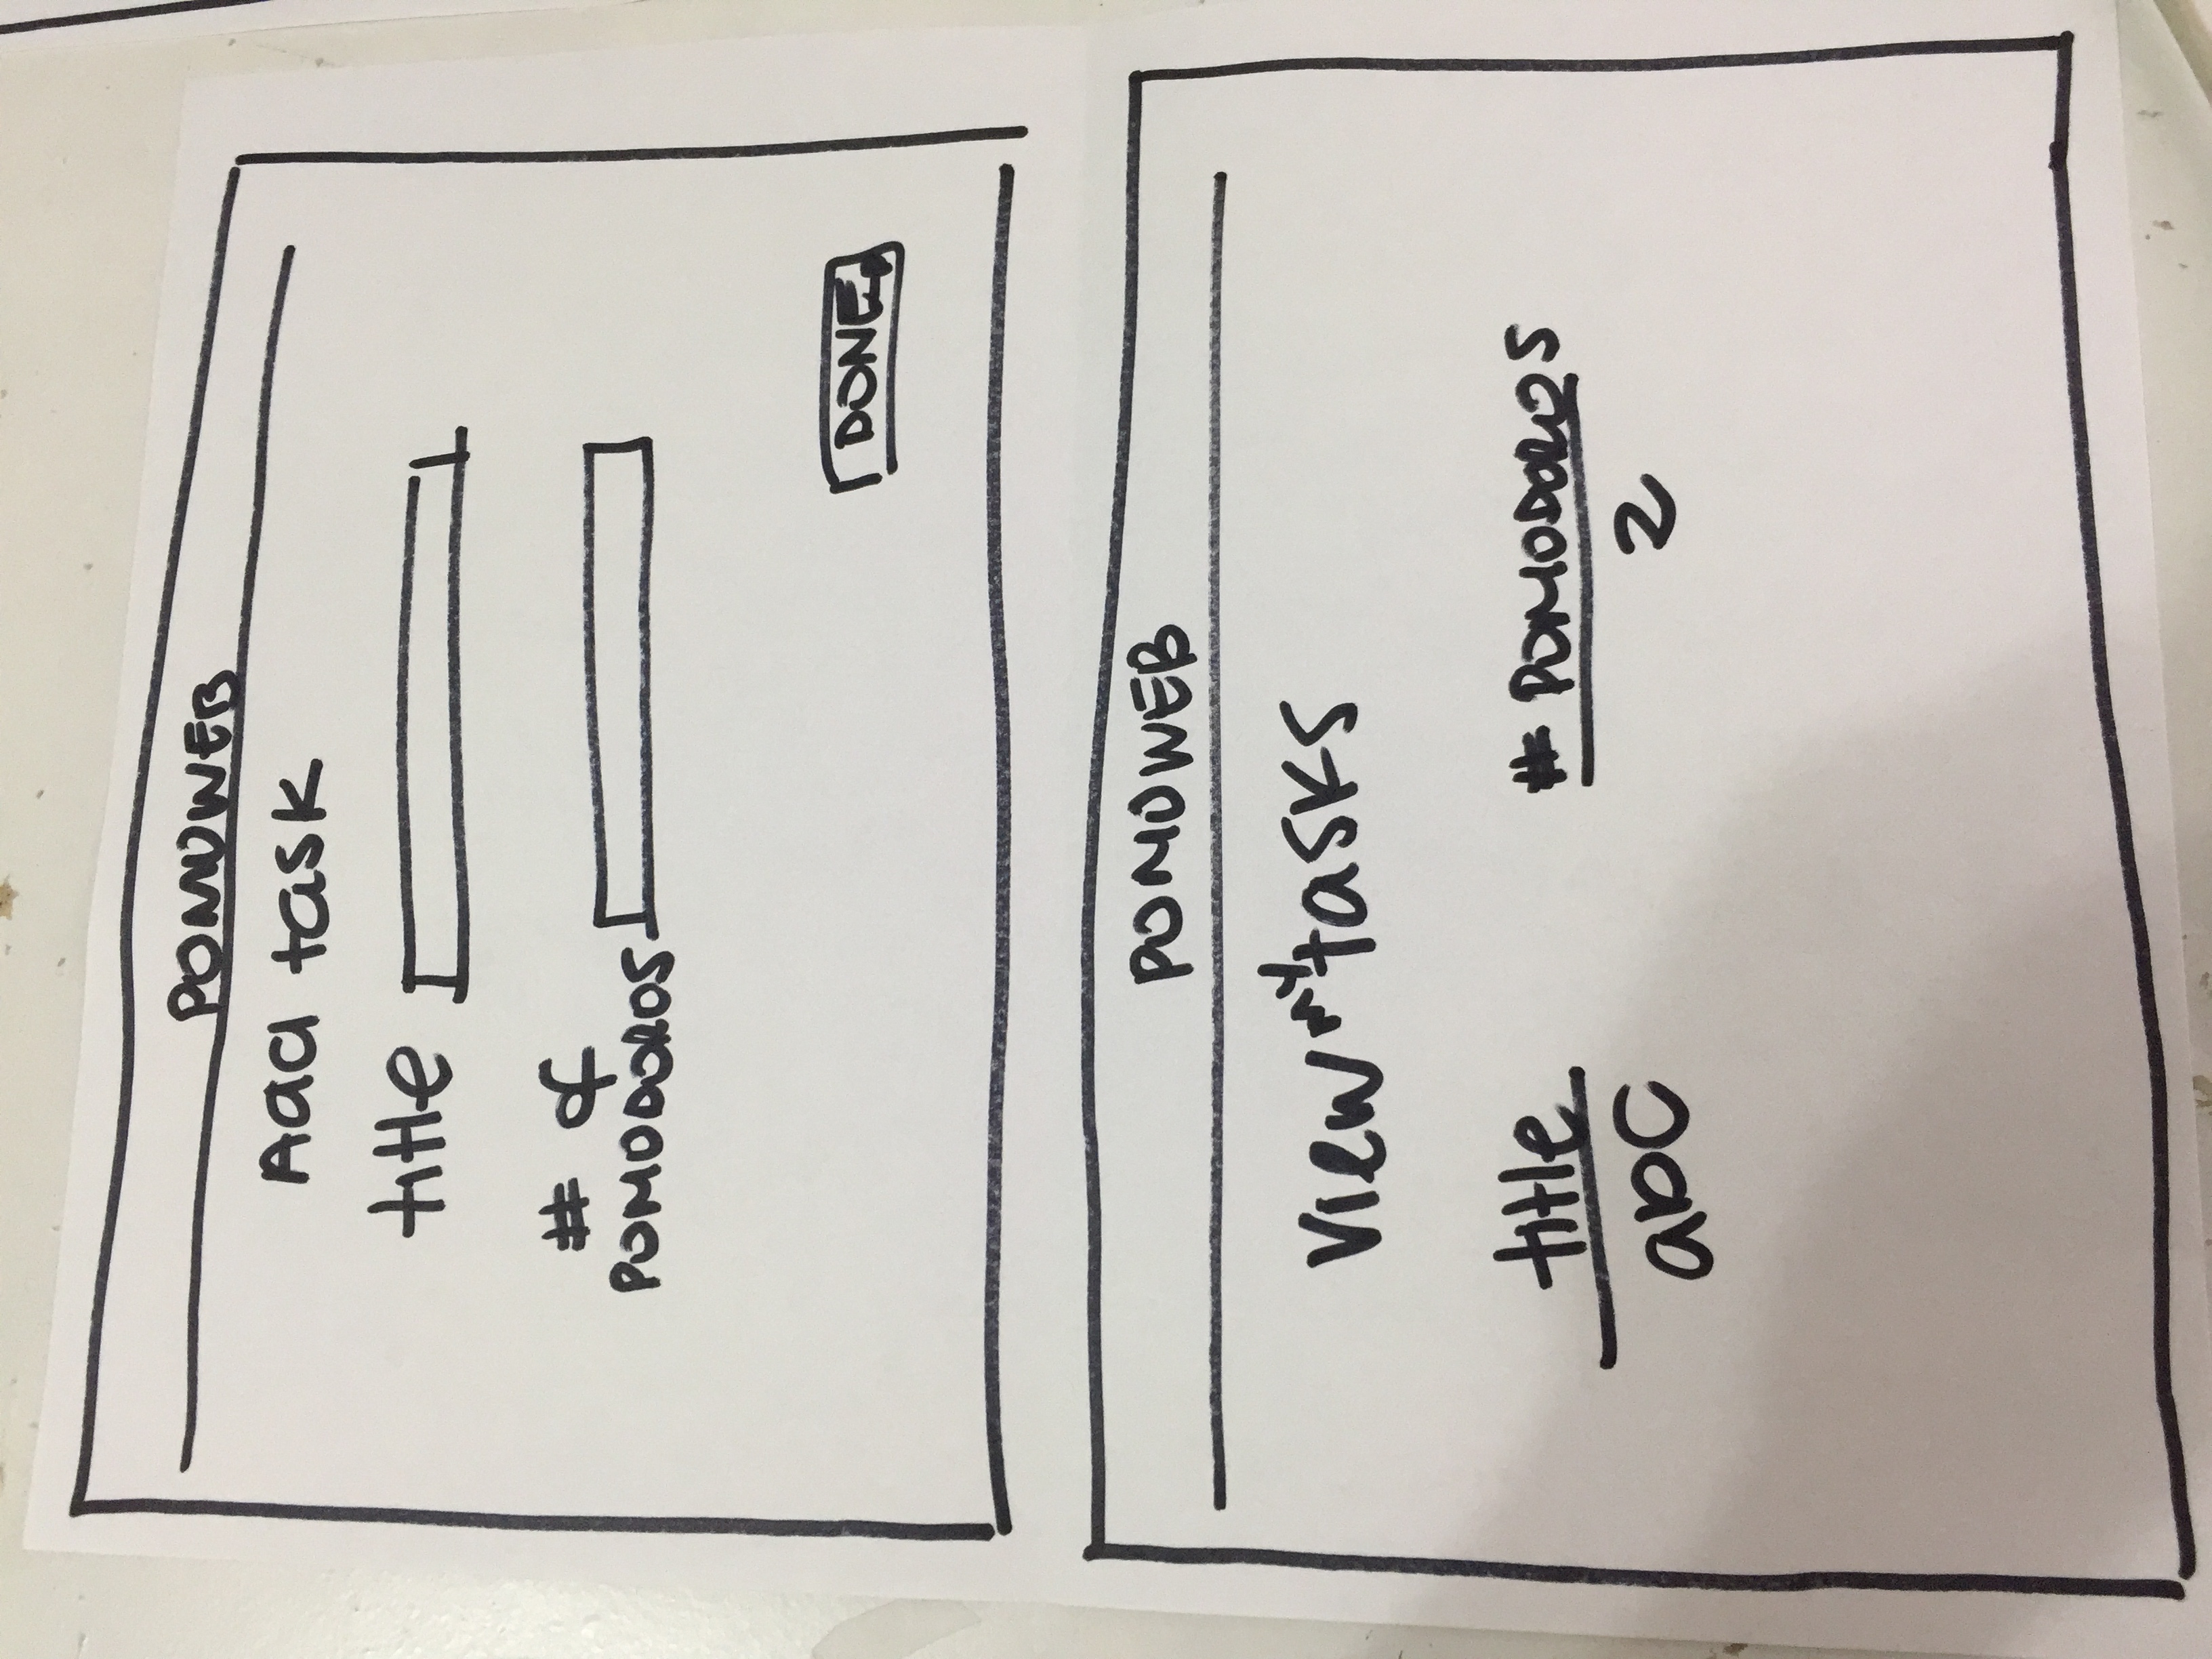 POMOWEB
Add task
title
# of
POMODOROS
DONE
POMOWEB
View my tasks
title # POMODOROS
abc 2